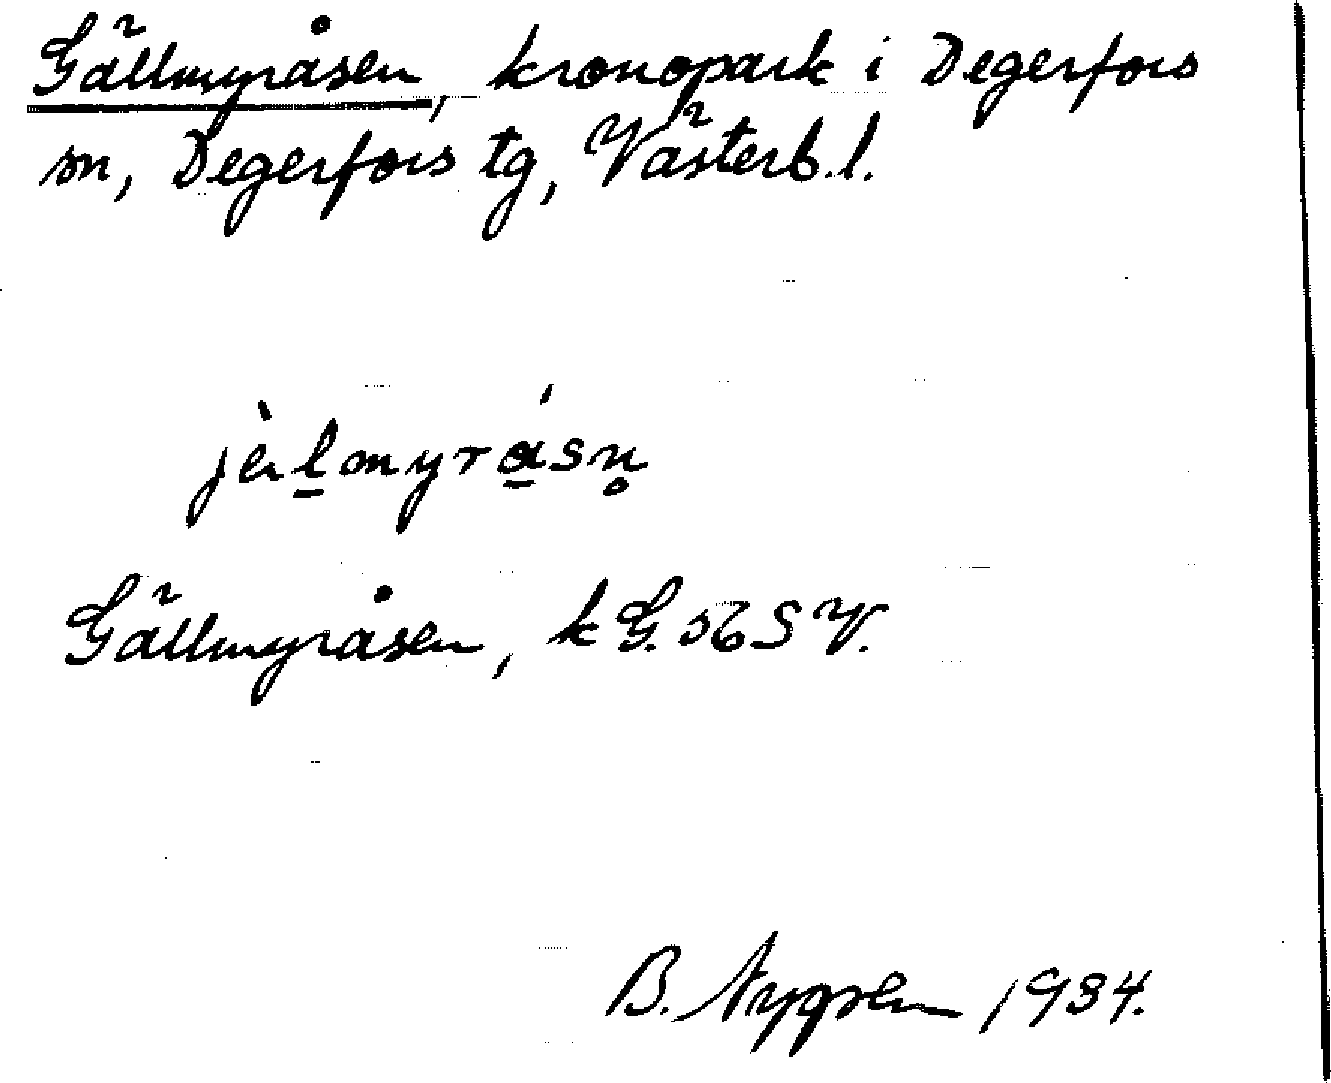 Gällmyråsen, kronopark i Degerfors
sn, Degerfors tg, Västerb. l.
jèl̠myrá̠sn̥
Gällmyråsen, k G. 56 S V.
B. 1934.